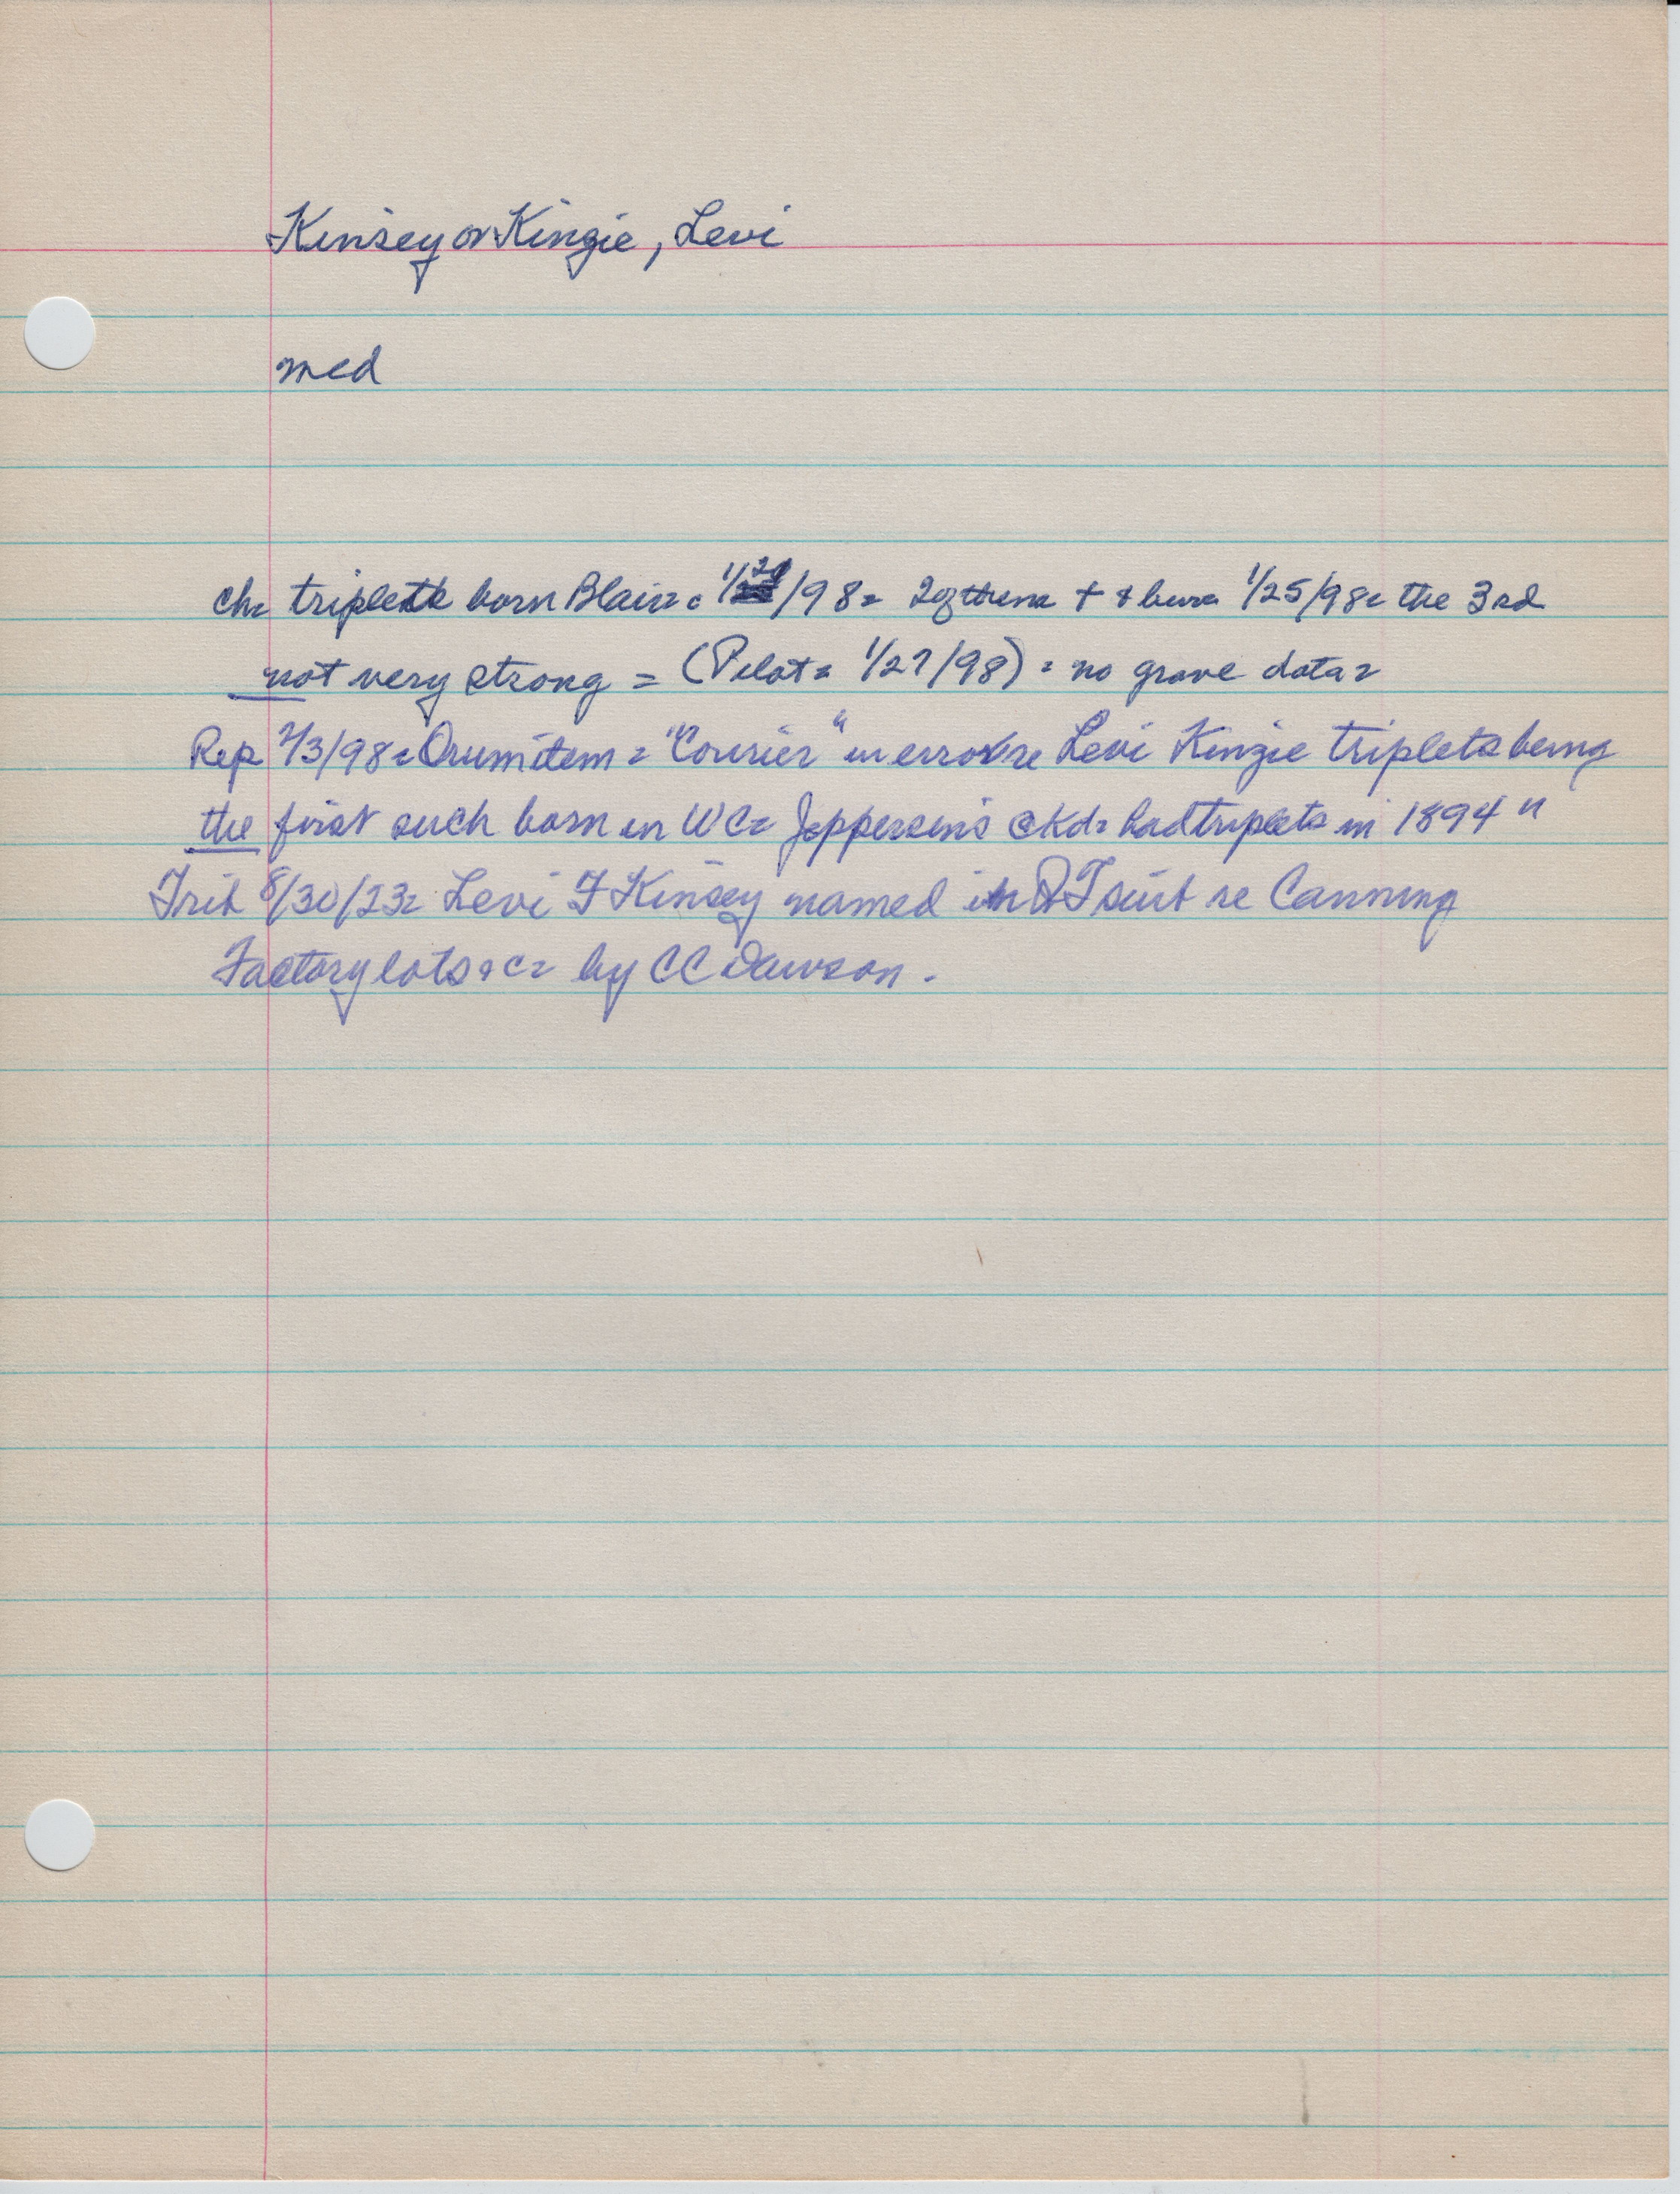 Kinsey or Kinzie, Levi
mcd
ch= triplets born Blair= 1/24/98= 2 of them + & bur= 1/25/98= the 3rd
not very strong = (Pilot= 1/27/98) = no grave data=
Rep 2/3/98= Orum item = "Courier" in error re Levi Kinzie triplets being
the first such born in WC= Jeppersen's ckd= had triplets in 1894 "
Trib 8/30/23= Levi F Kinsey named in QT suit re Canning
Factory lots &c= by CC Dawson.